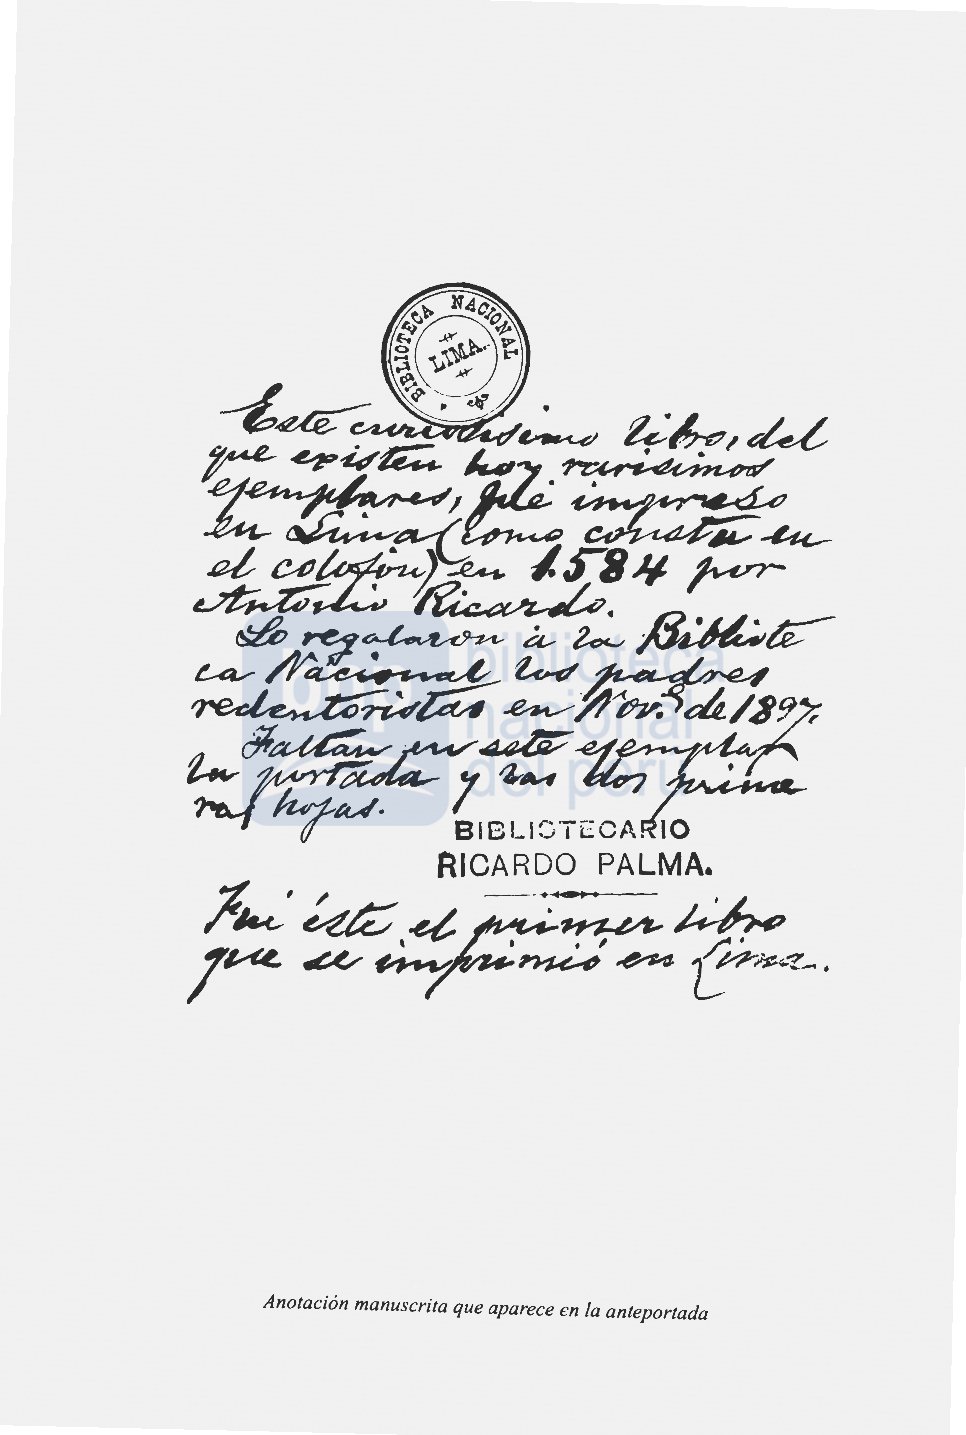 BIBLIOTECA NACIONAL
LIMA.
Este curiosísimo libro, del
que existen hoy rarisimos
ejemplares, fué impreso
en Lima (como consta en
el colofón) en 1.584 por
Antonio Ricardo.
Lo regalaron á la Bibliote
ca Nacional los padres
redentoristas en Nov.e de 1897.
Faltan en este ejemplar
la portada y las dos prime
ras hojas.
BIBLIOTECARIO
RICARDO PALMA.
Fué éste el primer libro
que se imprimió en Lima.
bnp biblioteca
nacional
del perú
Anotación manuscrita que aparece en la anteportada